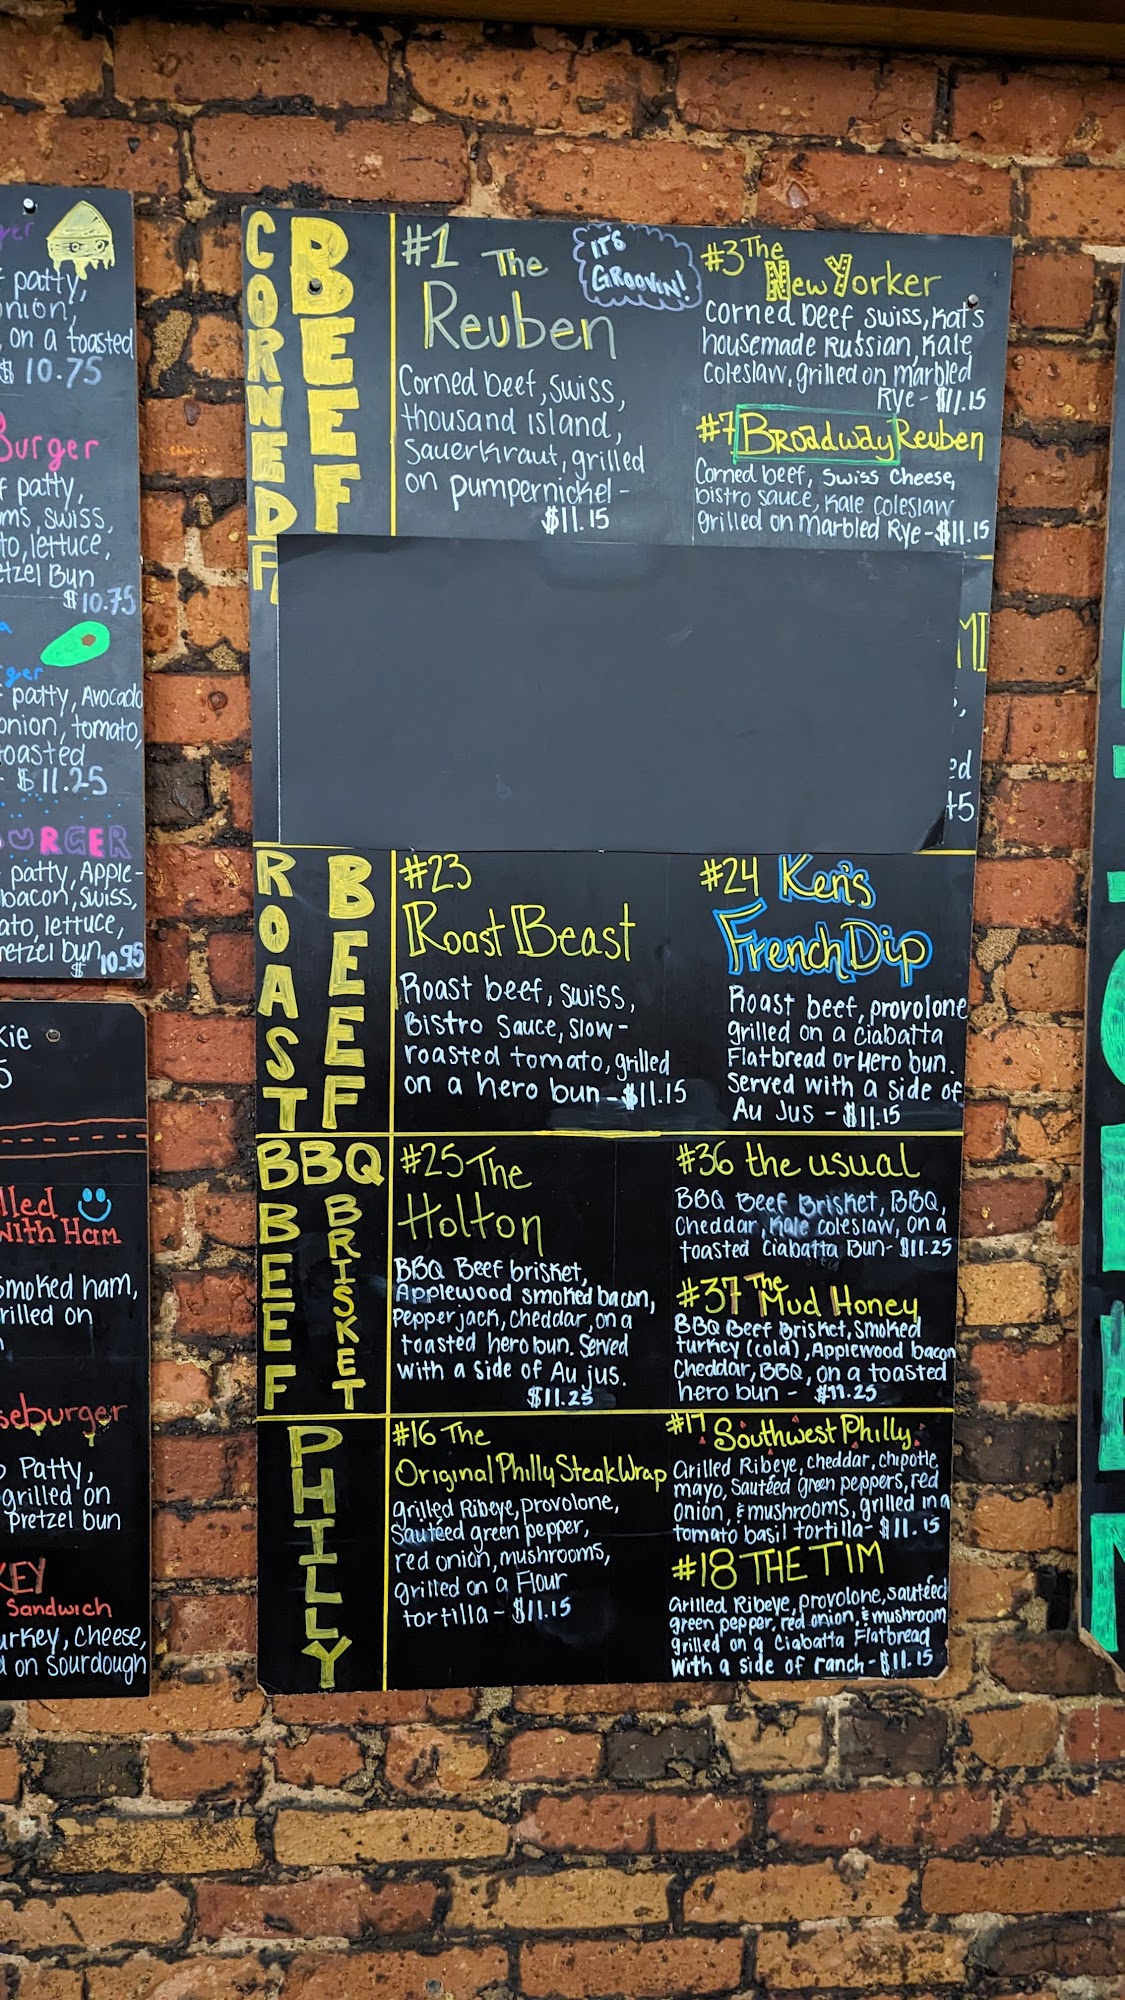 CORNED BEEF
#1 The
Reuben
IT'S
GROOVIN!
Corned beef, swiss,
thousand island,
sauerkraut, grilled
on pumpernickel -
$11.15
#3 The
New Yorker
corned beef swiss, Kat's
housemade Russian, Kale
coleslaw, grilled on marbled
Rye - $11.15
#7 Broadway Reuben
Corned beef, Swiss Cheese,
bistro sauce, Kale coleslaw
grilled on marbled Rye - $11.15
ed
ROAST BEEF
#23
Roast Beast
Roast beef, swiss,
Bistro Sauce, slow-
roasted tomato, grilled
on a hero bun - $11.15
#24 Ken's
French Dip
Roast beef, provolone
grilled on a Ciabatta
Flatbread or Hero bun.
Served with a side of
Au Jus - $11.15
BBQ
BEEF BRISKET
#25 The
Holton
BBQ Beef brisket,
Applewood smoked bacon,
Pepperjack, Cheddar, on a
toasted hero bun. Served
with a side of Au jus.
$11.25
#36 the usual
BBQ Beef Brisket, BBQ,
Cheddar, Kale coleslaw, on a
toasted Ciabatta Bun - $11.25
#37 The Mud Honey
BBQ Beef Brisket, smoked
turkey (cold), Applewood bacon
Cheddar, BBQ, on a toasted
hero bun - $11.25
PHILLY
#16 The
Original Philly Steak Wrap
grilled Ribeye, provolone,
Sautéed green pepper,
red onion, mushrooms,
grilled on a Flour
tortilla - $11.15
#17 Southwest Philly
Grilled Ribeye, cheddar, chipotle
mayo, Sautéed green peppers, red
onion, & mushrooms, grilled in a
tomato basil tortilla - $11.15
#18 THE TIM
Grilled Ribeye, provolone, sautéed
green pepper, red onion, & mushroom
grilled on a Ciabatta Flatbread
with a side of ranch - $11.15
patty,
onion,
, on a toasted
$10.75
Burger
patty,
swiss,
lettuce,
Bun
$10.75
patty, Avocado
onion, tomato,
toasted
$11.25
BURGER
patty, Apple-
bacon, swiss,
lettuce,
bun
$10.95
with Ham
smoked ham,
on
Patty,
grilled on
pretzel bun
Sandwich
Cheese,
on sourdough